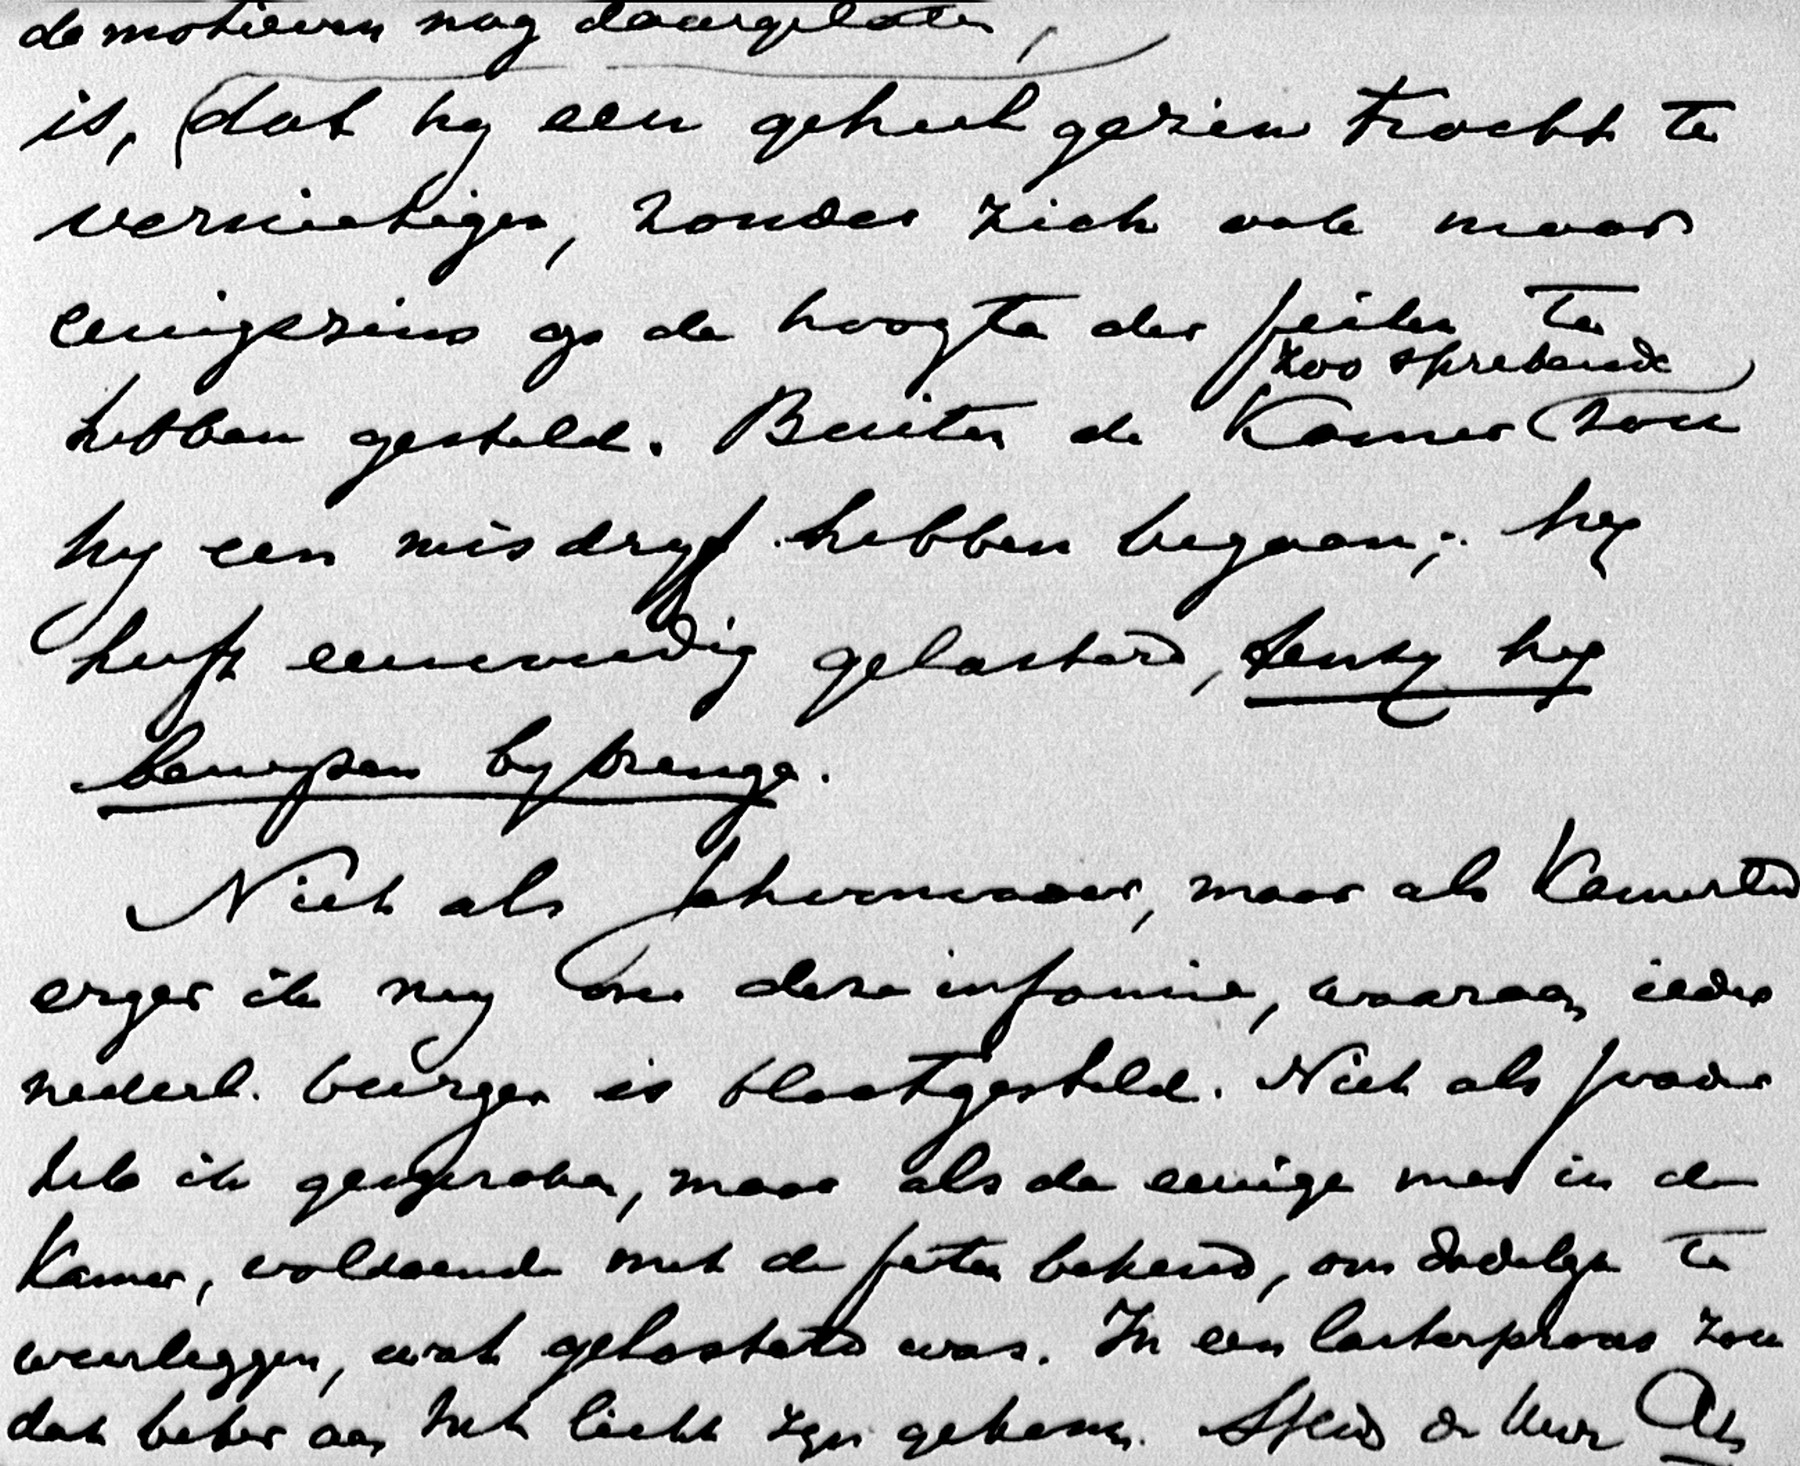 de motieven nog daargelaten,
is, dat hy een geheel gezin tracht te
vernietigen, zonder zich ook maar
eenigszins op de hoogte der feiten te
zoo sprekende
hebben gesteld. Buiten de Kamer zou
hy een misdryf hebben begaan; hy
heeft eenvoudig gelasterd, tenzy hy
bewyzen bybrenge.
Niet als schoonvader, maar als Kamerlid
erger ik my over deze infamie, waaraan ieder
nederl. burger is blootgesteld. Niet als vader
heb ik gesproken, maar als de eenige man in de
Kamer, voldoende met de feiten bekend, om dadelyk te
weerleggen, wat gelasterd was. In een lasterproces zou
dat beter aan het licht zyn gekomen. de Heer